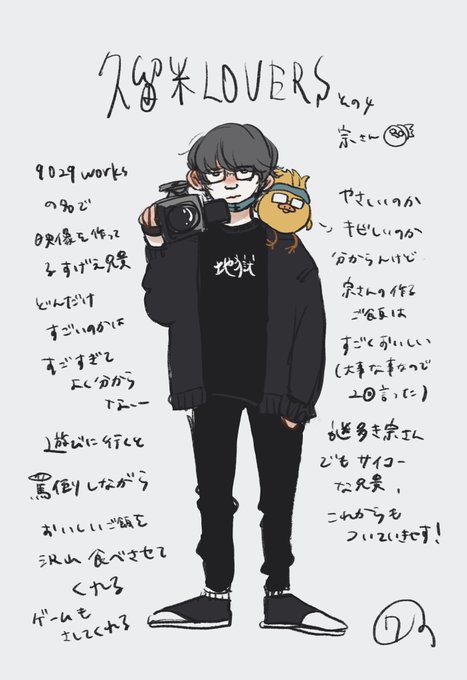 久留米LOVERS その4
宗さん
9029works
の名で
映像を作って
るすげえ兄貴
どんだけ
すごいのかは
すごすぎて
よく分から
ないー
遊びに行くと
罵倒しながら
おいしいご飯を
沢山食べさせて
くれる
ゲームも
さしてくれる
地獄
やさしいのか
キビしいのか
分からんけど
宗さんの作る
ご飯は
すごくおいしい
(大事な事なので
2回言った)
謎多き宗さん
でもサイコー
な兄貴、
これからも
ついていきます!